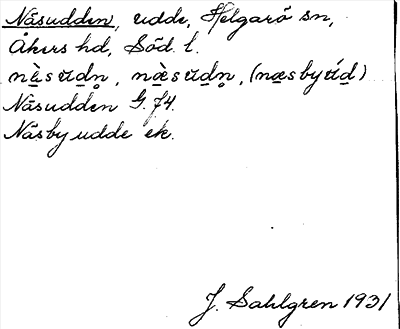 Näsudden, udde, Helgarö sn,
Åkers hd, Söd. l.
næ̀sᵾdn̥, næ̀sᵾdn̥, (næsbyᵾ́d)
Näsudden G. f4.
Näsby udde ek.
J. Sahlgren 1931